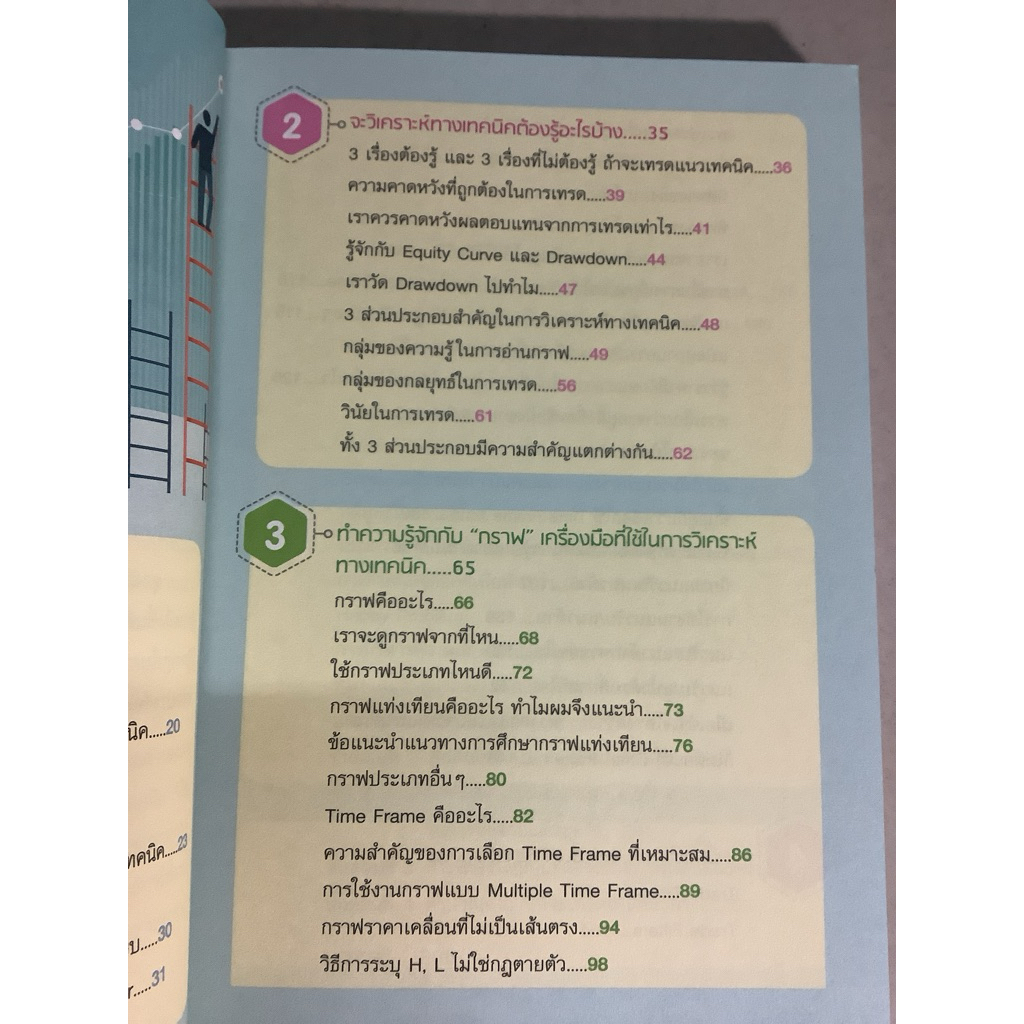 2
จะวิเคราะห์ทางเทคนิคต้องรู้อะไรบ้าง.....35
3 เรื่องต้องรู้ และ 3 เรื่องที่ไม่ต้องรู้ ถ้าจะเทรดแนวเทคนิค.....36
ความคาดหวังที่ถูกต้องในการเทรด.....39
เราควรคาดหวังผลตอบแทนจากการเทรดเท่าไร.....41
รู้จักกับ Equity Curve และ Drawdown.....44
เราวัด Drawdown ไปทำไม.....47
3 ส่วนประกอบสำคัญในการวิเคราะห์ทางเทคนิค.....48
กลุ่มของความรู้ในการอ่านกราฟ.....49
กลุ่มของกลยุทธ์ในการเทรด.....56
วินัยในการเทรด.....61
ทั้ง 3 ส่วนประกอบมีความสำคัญแตกต่างกัน.....62
3
ทำความรู้จักกับ “กราฟ” เครื่องมือที่ใช้ในการวิเคราะห์
ทางเทคนิค.....65
กราฟคืออะไร.....66
เราจะดูกราฟจากที่ไหน.....68
ใช้กราฟประเภทไหนดี.....72
กราฟแท่งเทียนคืออะไร ทำไมผมจึงแนะนำ.....73
ข้อแนะนำแนวทางการศึกษากราฟแท่งเทียน.....76
กราฟประเภทอื่นๆ.....80
Time Frame คืออะไร.....82
ความสำคัญของการเลือก Time Frame ที่เหมาะสม.....86
การใช้งานกราฟแบบ Multiple Time Frame.....89
กราฟราคาเคลื่อนที่ไม่เป็นเส้นตรง.....94
วิธีการระบุ H, L ไม่ใช่กฎตายตัว.....98
นิค.....20
ทคนิค.....23
บ.....30
r.....31